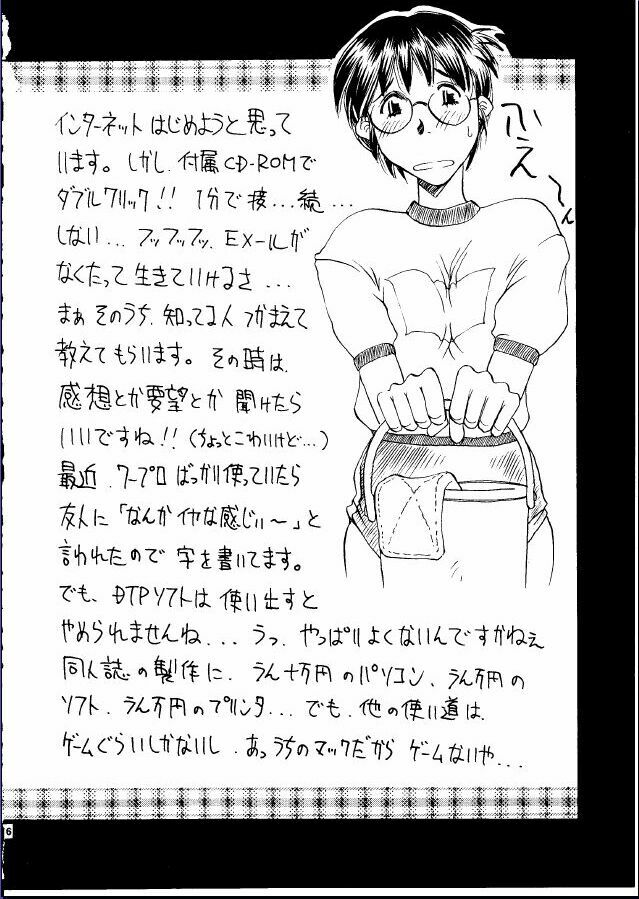 インターネットはじめようと思って
います。しかし、付属CD-ROMで
ダブルクリック!! 1分で接...続...
しない... フッフッフッ、EX-ルが
なくたって生きていけるさ...
まぁそのうち、知ってる人つかまえて
教えてもらいます。その時は、
感想とか要望とか聞けたら
いいですね!!(ちょっとこわいけど...)
最近、ワープロばっかり使っていたら
友人に「なんかイヤな感じぃ〜」と
言われたので字を書いてます。
でも、DTPソフトは使い出すと
やめられませんね... うっ、やっぱりよくないんですかねぇ
同人誌の製作に、うん十万円のパソコン、うん万円の
ソフト、うん万円のプリンタ... でも、他の使い道は
ゲームぐらいしかないし、あっうちのマックだからゲームないや...
ふえ〜ん
16